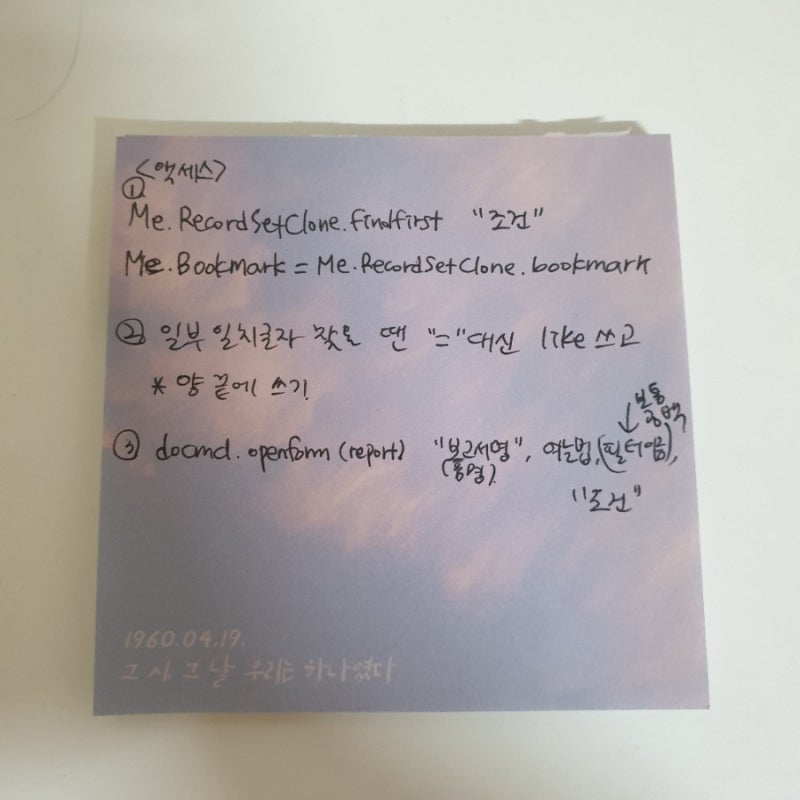 <액세스>
① Me.RecordSetClone.findfirst "조건"
Me.Bookmark = Me.RecordSetClone.bookmark
② 일부 일치글자 찾을 땐 "="대신 like 쓰고
* 양 끝에 쓰기
보통
공백
③ docmd.openform (report) "보고서명", 여는법, (필터이름),
(폼명)
"조건"
1960.04.19.
그 시, 그 날 우리는 하나였다